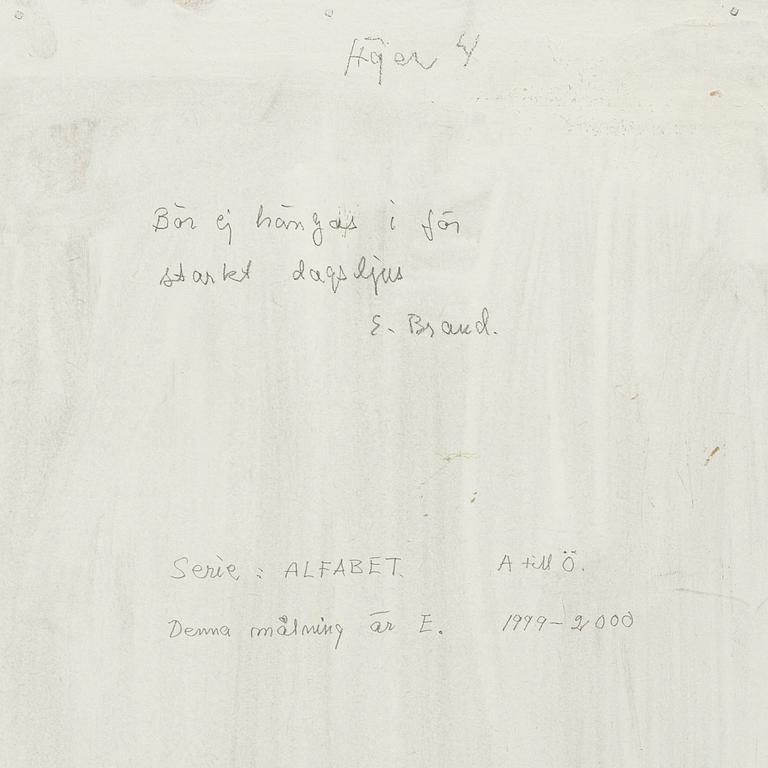 Bör ej hängas i för
starkt dagsljus
E. Brand.
Serie : ALFABET. A till Ö.
Denna målning är E. 1999-2000